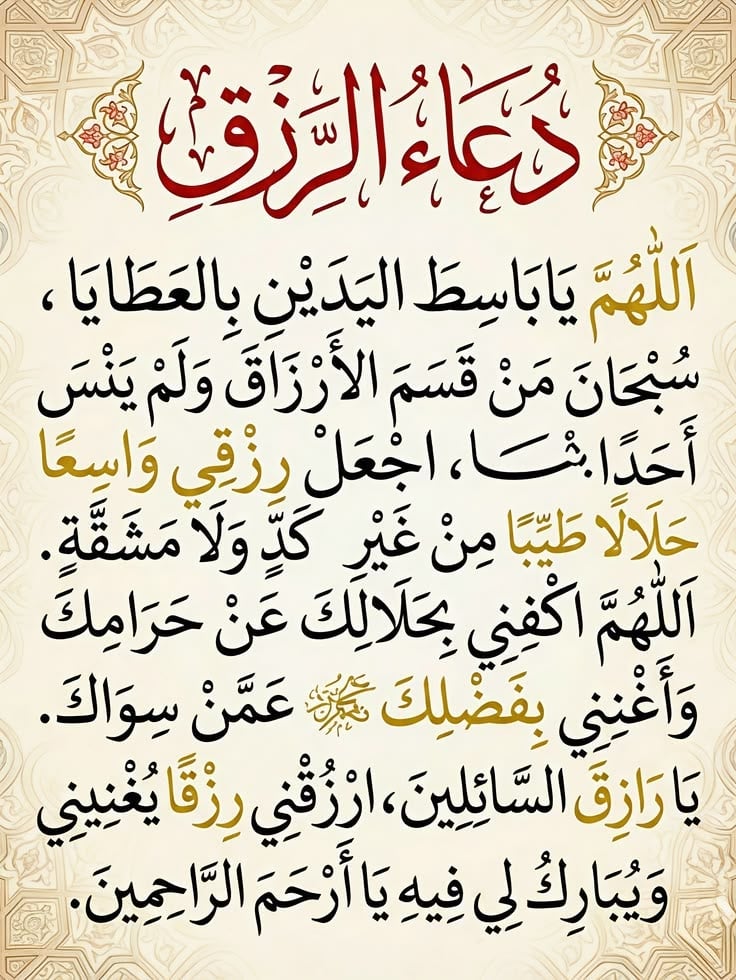 دُعَاءُ الرِّزْقِ
اَللّٰهُمَّ يَابَاسِطَ اليَدَيْنِ بِالعَطَايَا ،
سُبْحَانَ مَنْ قَسَمَ الأَرْزَاقَ وَلَمْ يَنْسَ
أَحَدًا ، اجْعَلْ رِزْقِي وَاسِعًا
حَلَالًا طَيِّبًا مِنْ غَيْرِ كَدٍّ وَلَا مَشَقَّةٍ.
اَللّٰهُمَّ اكْفِنِي بِحَلَالِكَ عَنْ حَرَامِكَ
وَأَغْنِنِي بِفَضْلِكَ عَمَّنْ سِوَاكَ.
يَا رَازِقَ السَّائِلِينَ، ارْزُقْنِي رِزْقًا يُغْنِينِي
وَيُبَارِكُ لِي فِيهِ يَا أَرْحَمَ الرَّاحِمِينَ.